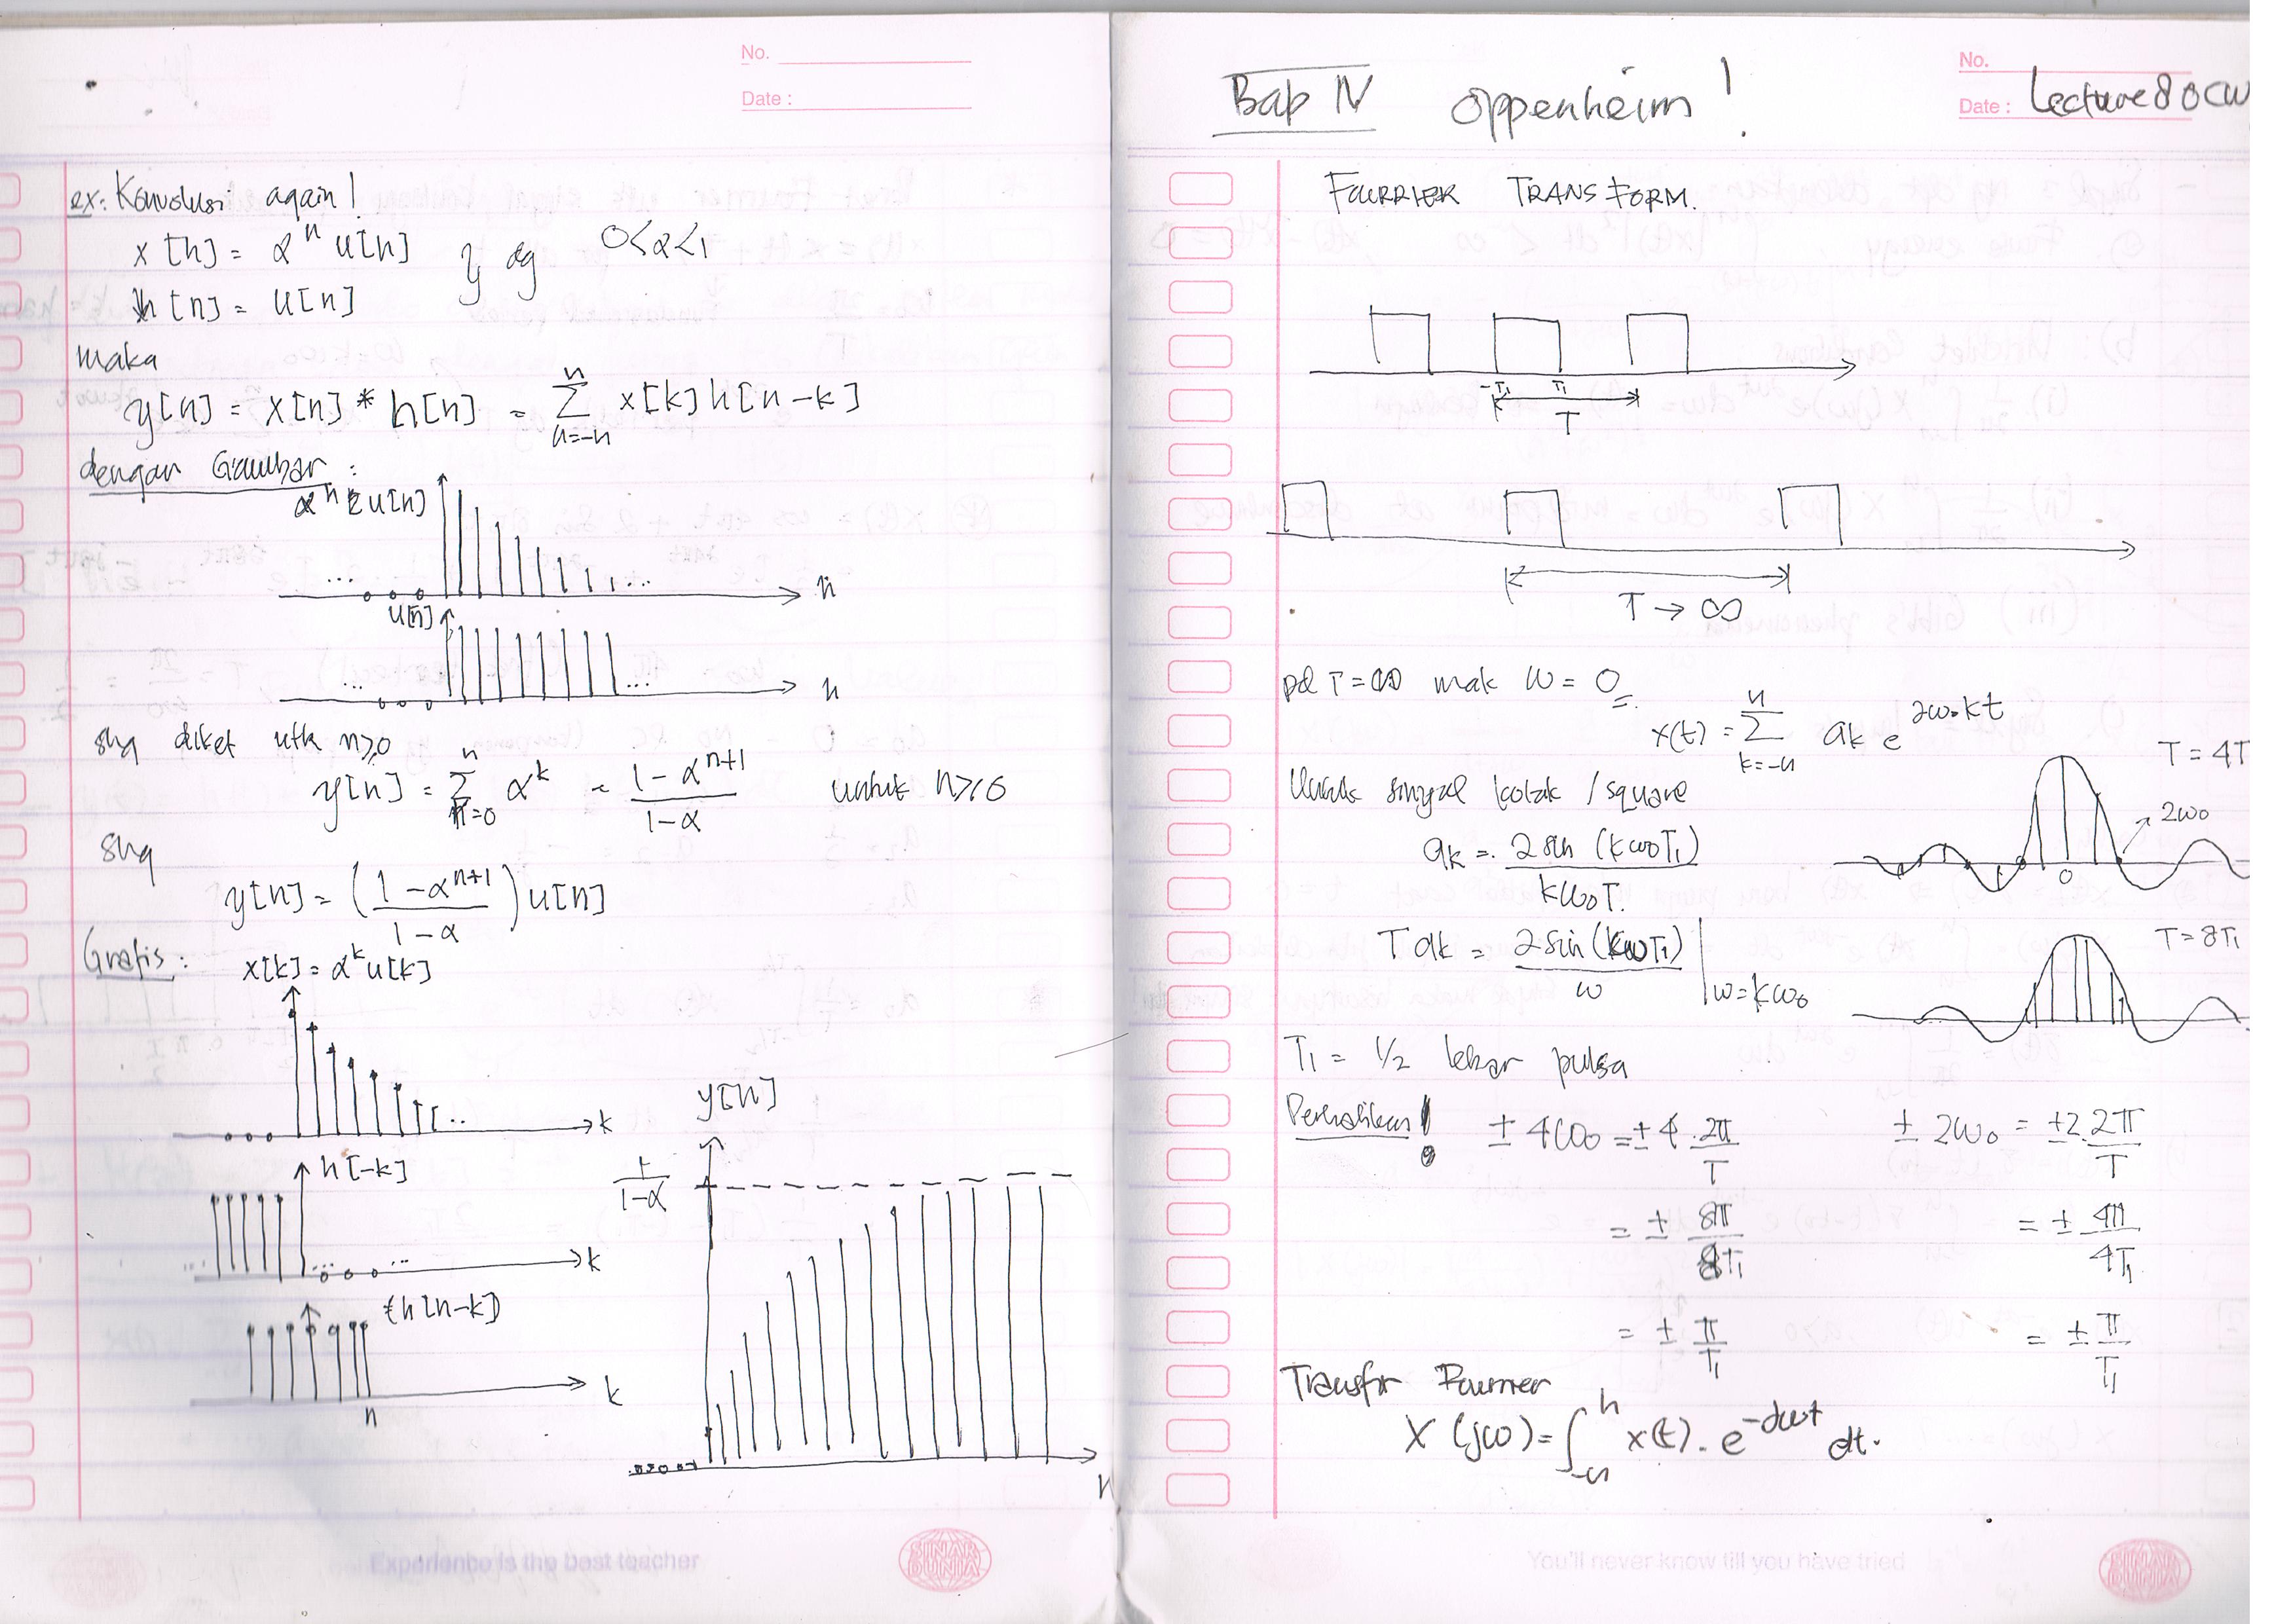 No.
Date :
ex: Konvolusi again!
x[n] = α^n u[n] } dg 0<α<1
h[n] = u[n]
maka
y[n] = x[n] * h[n] = Σ_{n=-n}^{n} x[k] h[n-k]
dengan Gambar :
α^n u[n]
... ...
n
u[n]
... ...
n
shg diket utk n≥0
y[n] = Σ_{k=0}^{n} α^k = (1-α^{n+1})/(1-α) untuk n≥0
shg
y[n] = ((1-α^{n+1})/(1-α)) u[n]
Grafis :
x[k] = α^k u[k]
...
k
h[-k]
... ...
k
h[n-k]
k
n
y[n]
1/(1-α)
n
Experience is the best teacher
SINAR DUNIA
No.
Date : Lecture 8 OCW
Bab IV Oppenheim !
FOURRIER TRANSFORM.
-T₁ T₁
T
T → ∞
pd T = ∞ mak ω = 0
x(t) = Σ_{k=-n}^{n} ak e^{jω₀kt}
Untuk sinyal kotak / square
ak = 2 sin (kω₀T₁)/kω₀T.
T ak = 2 sin (kωT₁)/ω |ω=kω₀
T = 4T
2ω₀
0
T = 8T₁
T₁ = 1/2 lebar pulsa
Perhatikan! ± 4ω₀ = ± 4 . 2π/T ± 2ω₀ = ±2. 2π/T
= ± 8π/8T₁ = ± 4π/4T₁
= ± π/T₁ = ± π/T₁
Transfor Fourier
X (jω) = ∫_{-n}^{n} x(t) . e^{-jωt} dt.
You'll never know till you have tried
SINAR DUNIA